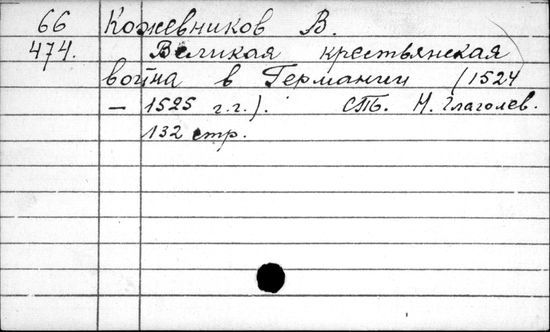 66 Кожевников В.
474. Великая крестьянская
война в Германии (1524
– 1525 г.г.). СТБ. Н. Глаголев.
132 стр.